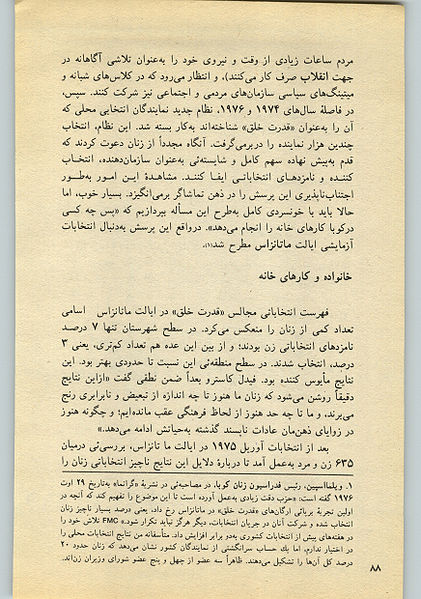 مردم ساعات زیادی از وقت و نیروی خود را به‌عنوان تلاشی آگاهانه در
جهت انقلاب صرف کار می‌کنند)، و انتظار می‌رود که در کلاس‌های شبانه و
میتینگ‌های سیاسی سازمان‌های مردمی و اجتماعی نیز شرکت کنند. سپس،
در فاصلهٔ سال‌های ۱۹۷۴ و ۱۹۷۶، نظام جدید نمایندگان انتخابی محلی که
آن را به‌عنوان «قدرت خلق» شناخته‌اند به‌کار بسته شد. این نظام، انتخاب
چندین هزار نماینده را دربرمی‌گرفت. آنگاه مجدداً از زنان دعوت کردند که
قدم به‌پیش نهاده سهم کامل و شایسته‌ئی به‌عنوان سازمان‌دهنده، انتخاب
کننده و نامزدهای انتخاباتی ایفا کنند. مشاهدهٔ این امور به‌طور
اجتناب‌ناپذیری این پرسش را در ذهن تماشاگر برمی‌انگیزد. بسیار خوب، اما
حالا باید با خونسردی کامل به‌طرح این مسأله بپردازیم که «پس چه کسی
درکوبا کارهای خانه را انجام می‌دهد». درواقع این پرسش به‌دنبال انتخابات
آزمایشی ایالت ماتانزاس مطرح شد(۱).
خانواده و کارهای خانه
فهرست انتخاباتی مجالس «قدرت خلق» در ایالت ماتانزاس اسامی
تعداد کمی از زنان را منعکس می‌کرد. در سطح شهرستان تنها ۷ درصد
نامزدهای انتخاباتی زن بودند؛ و از بین این عده هم تعداد کم‌تری، یعنی ۳
درصد، انتخاب شدند. در سطح منطقه‌ئی این نسبت تا حدودی بهتر بود. این
نتایج مأیوس کننده بود. فیدل کاسترو بعداً ضمن نطقی گفت «ازاین نتایج
دقیقاً روشن می‌شود که زنان ما هنوز تا چه اندازه از تبعیض و نابرابری رنج
می‌برند، و ما تا چه حد هنوز از لحاظ فرهنگی عقب مانده‌ایم؛ و چگونه هنوز
در زوایای ذهن‌مان عادات ناپسند گذشته به‌حیاتش ادامه می‌دهد.»
بعد از انتخابات آوریل ۱۹۷۵ در ایالت ما تانزاس، بررسی‌ئی درمیان
۶۳۵ زن و مرد به‌عمل آمد تا دربارهٔ دلایل این نتایج ناچیز انتخاباتی زنان را
۱. ویلمااسپین، رئیس فدراسیون زنان کوبا، در مصاحبه‌ئی در نشریهٔ «گرانما» به‌تاریخ ۲۹ اوت
۱۹۷۶ گفته است: «حزب دقت زیادی به‌عمل آورده است تا این موضوع را تفهیم کند که آنچه در
اولین تجربهٔ برپائی ارگان‌های «قدرت خلق» در ماتانزاس رخ داد، یعنی درصد بسیار ناچیز زنان
انتخاب شده و شرکت آنان در جریان انتخابات، دیگر هرگز نباید تکرار شود.» FMC تلاش خود را
در هفته‌های پیش از انتخابات کشوری به‌دو برابر افزایش داد. متأسفانه من نتایج انتخابات محلی را
در اختیار ندارم. اما یك حساب سرانگشتی از نمایندگان کشور نشان می‌دهد که زنان حدود ۲۰
درصد کل آن‌ها را تشکیل می‌دهند. ظاهراً سه عضو از چهل و پنج عضو شورای وزیران زن‌اند.
۸۸